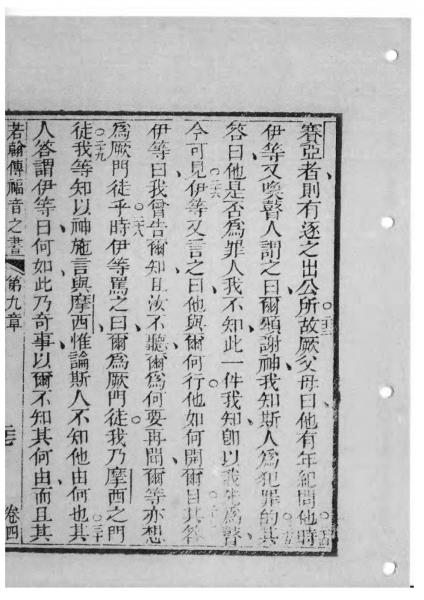 賽亞者則有逐之出公所故厥父母曰他有年紀問他時
伊等又喚瞽人謂之曰爾頌謝神我知斯人為犯罪的其
答曰他是否為罪人我不知此一件我知即以我先為瞽
今可見伊等又言之曰他與爾何行他如何開爾目其答
伊等曰我曾告爾知且汝不聽爾為何要再聞爾等亦想
為厥門徒乎時伊等罵之曰爾為厥門徒我乃摩西之門
徒我等知以神施言與摩西惟論斯人不知他由何也其
人答謂伊等曰何如此乃奇事以爾不知其何由而且其
若翰傳福音之書 第九章 卷四